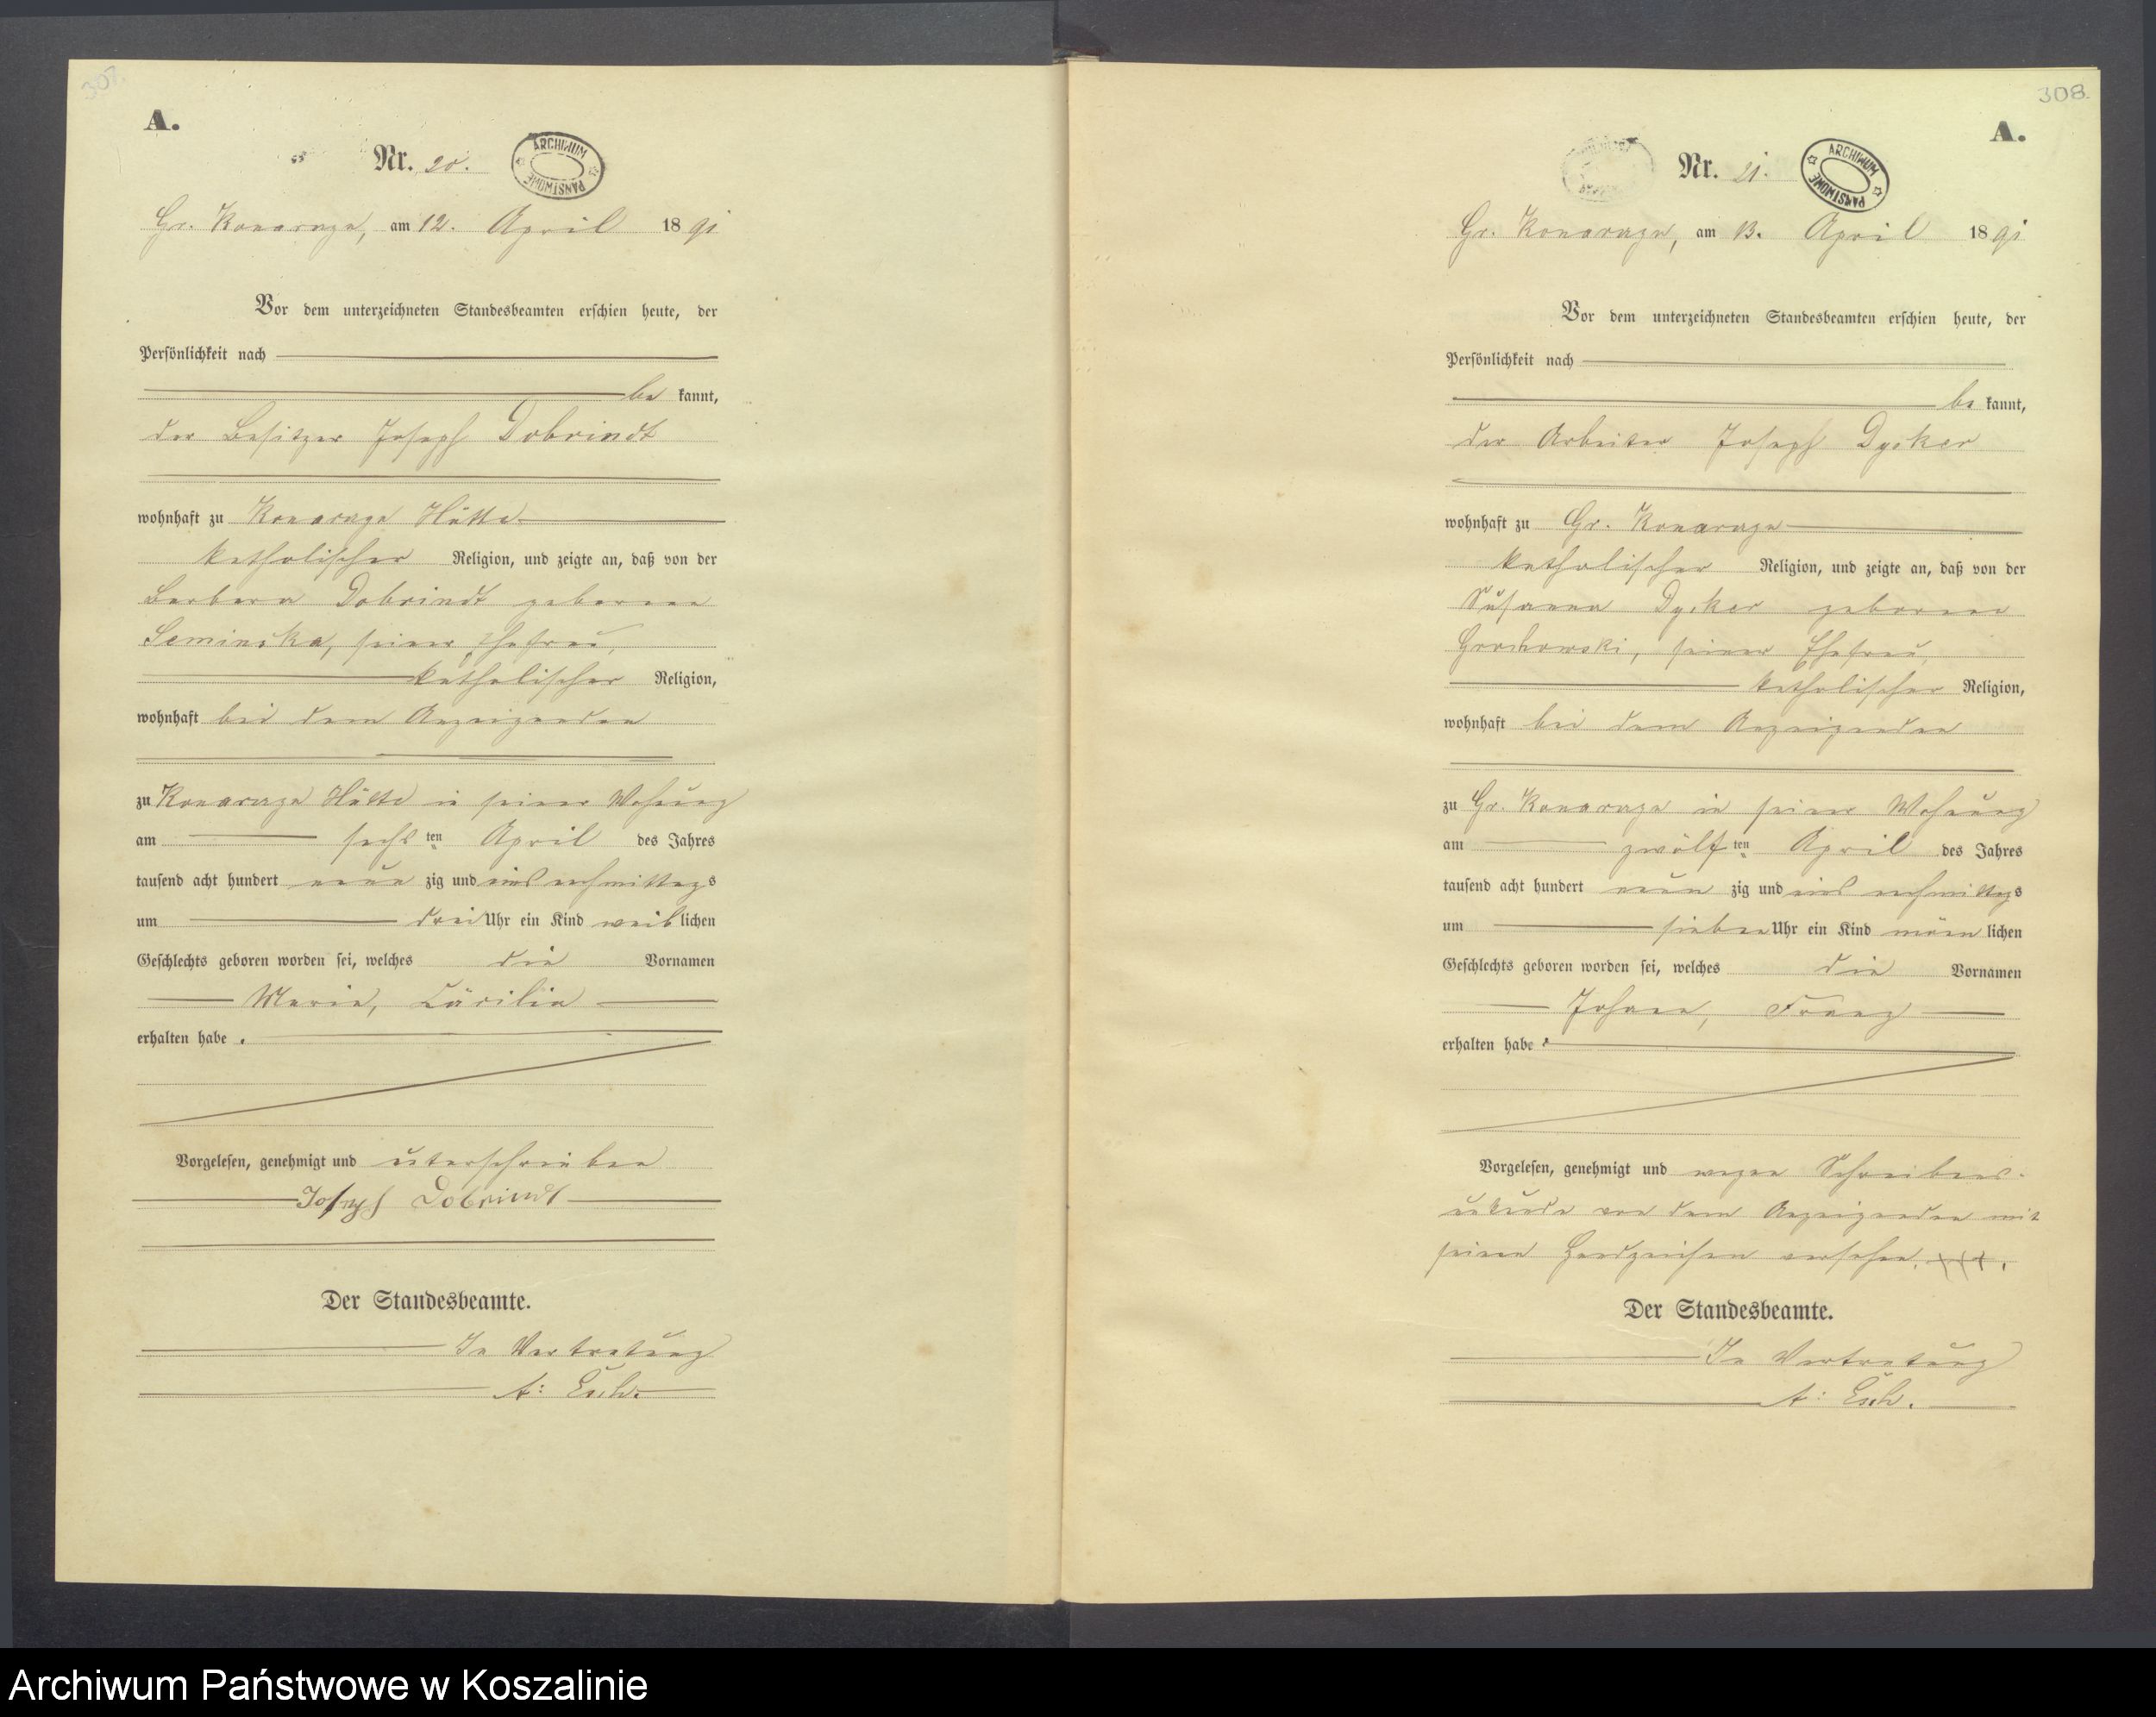 307.
A.
Nr. 20.
ARCHIWUM PAŃSTWOWE
Gr. Konarzyn, am 12. April 1891
Vor dem unterzeichneten Standesbeamten erschien heute, der
Persönlichkeit nach
be kannt,
der Besitzer Joseph Dobrindt
wohnhaft zu Konarzyn Hütte
katholischer Religion, und zeigte an, daß von der
Barbara Dobrindt geborene
Seminska, seiner Ehefrau,
katholischer Religion,
wohnhaft bei dem Anzeigenden
zu Konarzyn Hütte in seiner Wohnung
am sechs ten April des Jahres
tausend acht hundert neun zig und eins nachmittags
um drei Uhr ein Kind weib lichen
Geschlechts geboren worden sei, welches die Vornamen
Maria, Cäcilia
erhalten habe.
Vorgelesen, genehmigt und unterschrieben
Joseph Dobrindt
Der Standesbeamte.
In Vertretung
A:
308.
A.
Nr. 21.
ARCHIWUM PAŃSTWOWE
Gr. Konarzyn, am 13. April 1891
Vor dem unterzeichneten Standesbeamten erschien heute, der
Persönlichkeit nach
be kannt,
der Arbeiter Joseph Dycker
wohnhaft zu Gr. Konarzyn
katholischer Religion, und zeigte an, daß von der
Susanna Dycker geborene
Grochowski, seiner Ehefrau,
katholischer Religion,
wohnhaft bei dem Anzeigenden
zu Gr. Konarzyn in seiner Wohnung
am zwölf ten April des Jahres
tausend acht hundert neun zig und eins nachmittags
um sieben Uhr ein Kind männ lichen
Geschlechts geboren worden sei, welches die Vornamen
Johann, Franz
erhalten habe.
Vorgelesen, genehmigt und wegen Schreibens-
unkunde von dem Anzeigenden mit
seinem Handzeichen versehen. +++.
Der Standesbeamte.
In Vertretung
A:
Archiwum Państwowe w Koszalinie